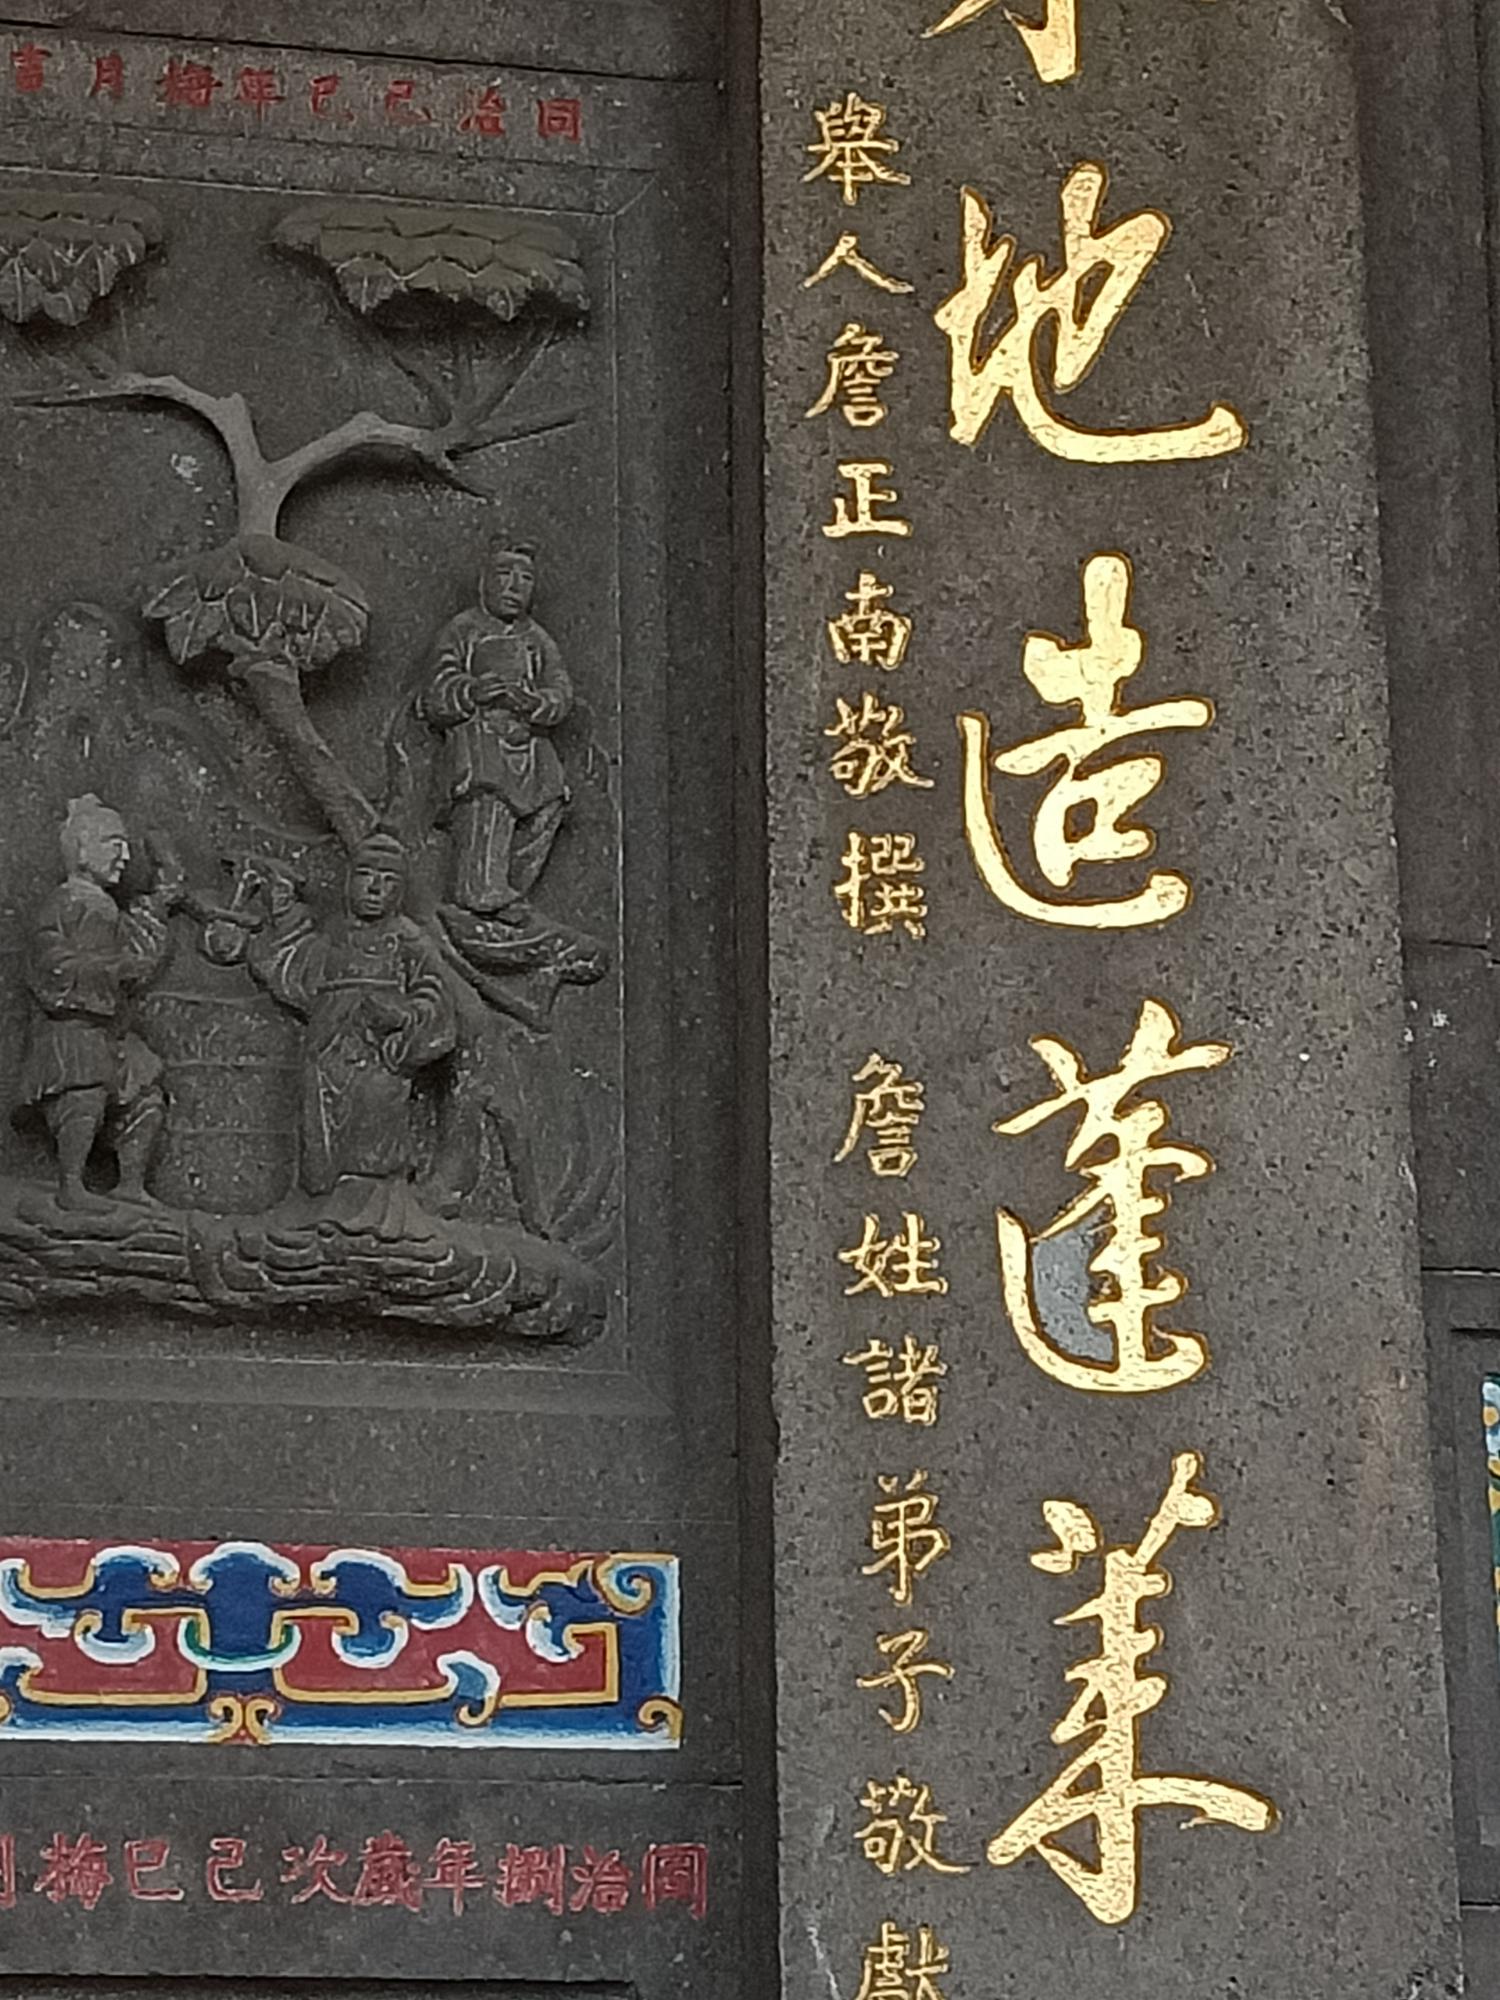 地造蓬萊
舉人詹正南敬撰　詹姓諸弟子敬獻
同治己巳年梅月吉
同治捌年歲次己巳梅